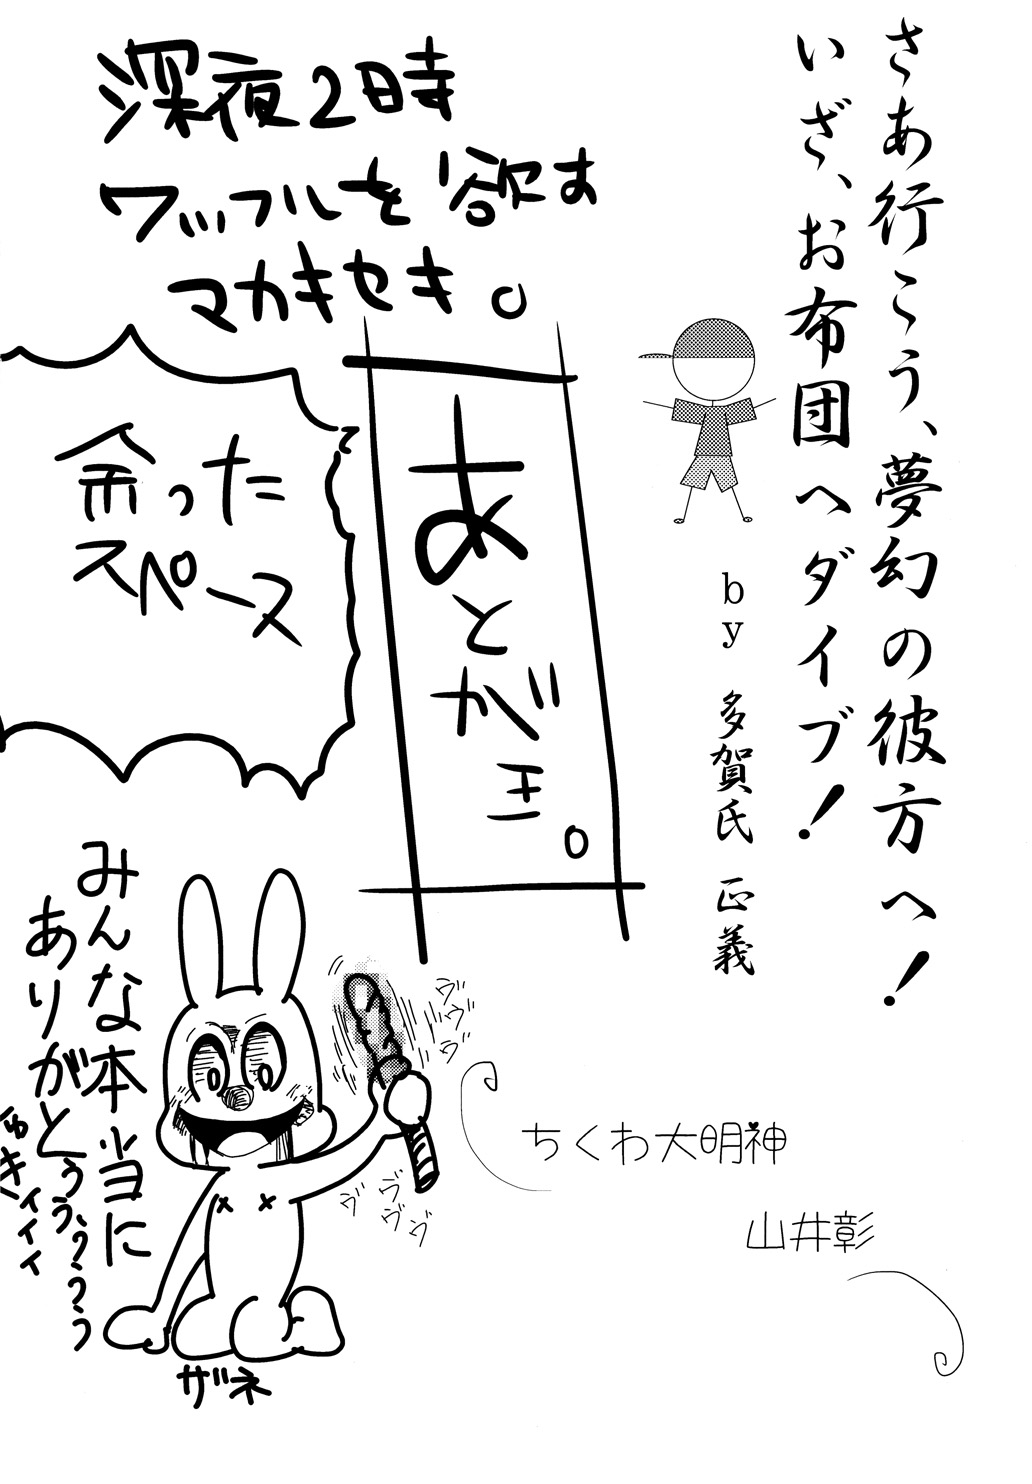 さあ行こう、夢幻の彼方へ!
いざ、お布団へダイブ!
by 多賀氏 正義
深夜2時
ワッフルを欲す
マカキセキ。
あとがき。
余った
スペース
みんな本当に
ありがとぅぅぅ?ぅぅぅ
ゆキィィィ
ザネ
ヴ
ヴヴ
ヴ
ヴ
ヴ
ヴヴ
ちくわ大明神
山井彰